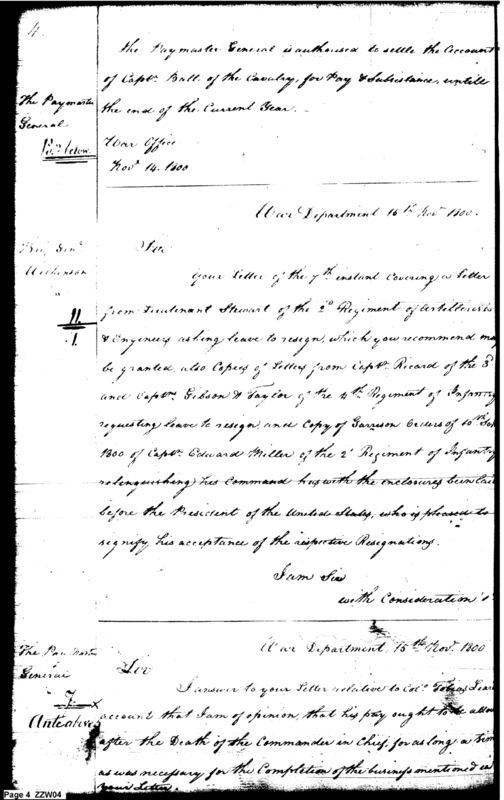 4.
The Paymaster General is authorised to settle the Account
of Captn. Ball of the Cavalry, for Pay & Subsistance, untill
the end of the Current Year.
The Paymaster
General
below.
War Office
Novr. 14. 1800
War Department 15th Novr. 1800.
Brig Genl.
Wilkinson
11.
1.
Sir
Your Letter of the 7th. instant Covering a Letter
from Lieutenant Stewart of the 2d. Regiment of Artillerists
& Engineers asking leave to resign, which you recommend may
be granted, also Copies of Letters from Captn. Ricard of the 3d
and Captns. Gibson & Taylor of the 4th Regiment of Infantry
requesting leave to resign, and Copy of Garrison Orders of 10th
1800 of Captn. Edward Miller of the 2d Regiment of Infantry
relinquishing his Command has with the enclosures been laid
before the President of the United States, who is pleased to
signify his acceptance of the respective Resignations.
I am Sir
with Consideration
War Department, 15th Novr. 1800
The Pay Master
General
7 x
Ante above
Sir
I answer to your Letter relative to Colo. Tobias Lear
account that I am of opinion, that his pay ought to be allow
after the Death of the Commander in Chief, for as long a time
as was necessary for the Completion of the business mentioned in
your Letter.
Page 4 ZZW04